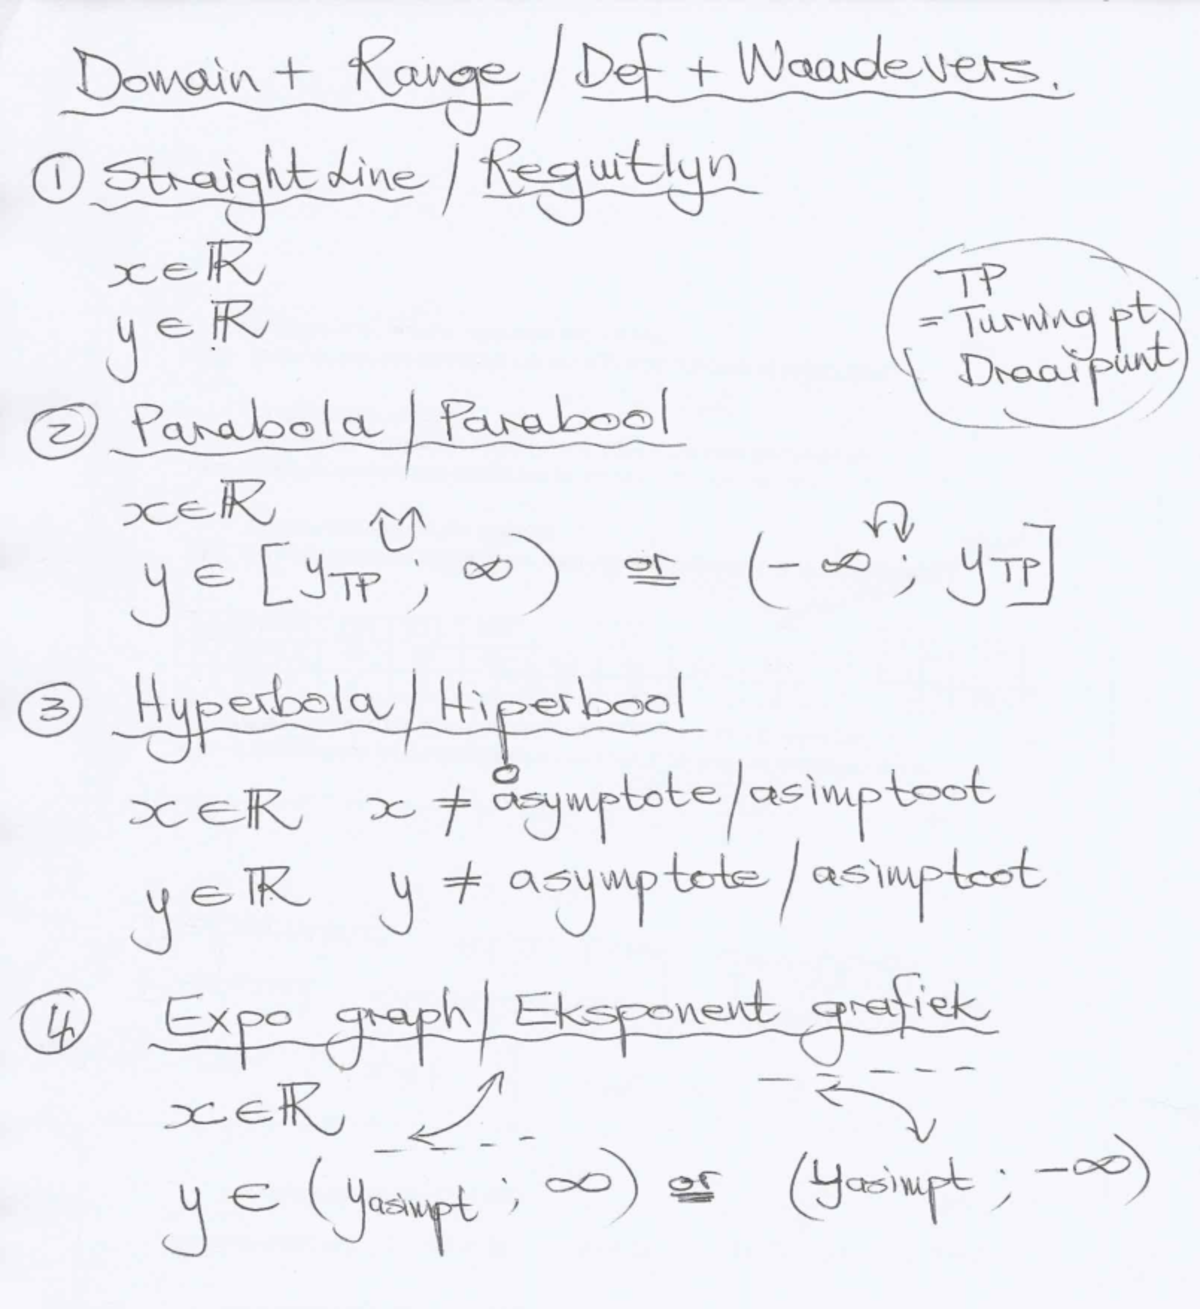 Domain + Range / Def + Waardevers.
① Straight Line / Reguitlyn
x ∈ ℝ
y ∈ ℝ
TP
= Turning pt
Draaipunt
② Parabola / Parabool
x ∈ ℝ
y ∈ [y_TP ; ∞) or (-∞ ; y_TP]
③ Hyperbola / Hiperbool
x ∈ ℝ x ≠ asymptote / asimptoot
y ∈ ℝ y ≠ asymptote / asimptoot
④ Expo graph / Eksponent grafiek
x ∈ ℝ
y ∈ (y_asimpt ; ∞) or (y_asimpt ; -∞)